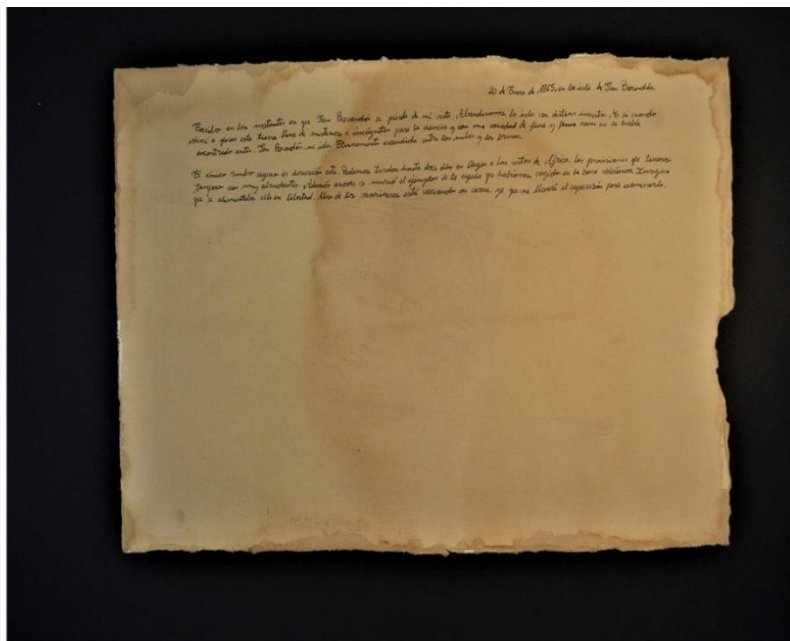 20 de Enero de 1865, en la isla de San Borondón
Escribo en los instantes en que San Borondón se pierde de mi vista. Abandonamos la isla con destino incierto. No sé cuando
volveré a pisar esta tierra llena de misterios e incógnitas para la ciencia y con una variedad de flora y fauna como no se había
encontrado antes. San Borondón, mi isla. Eternamente escondida entre las nubes y las brumas.
El único rumbo seguro es dirección este. Podemos tardar hasta doce días en llegar a las costas de África, las provisiones que tenemos
tampoco son muy abundantes. Además anoche se murió el ejemplar de la especie que habíamos cogido en la zona volcánica. Imagino
que se alimentaba sólo en libertad. Uno de los marineros está secando su carne ya que me llevaré el caparazón para examinarlo.